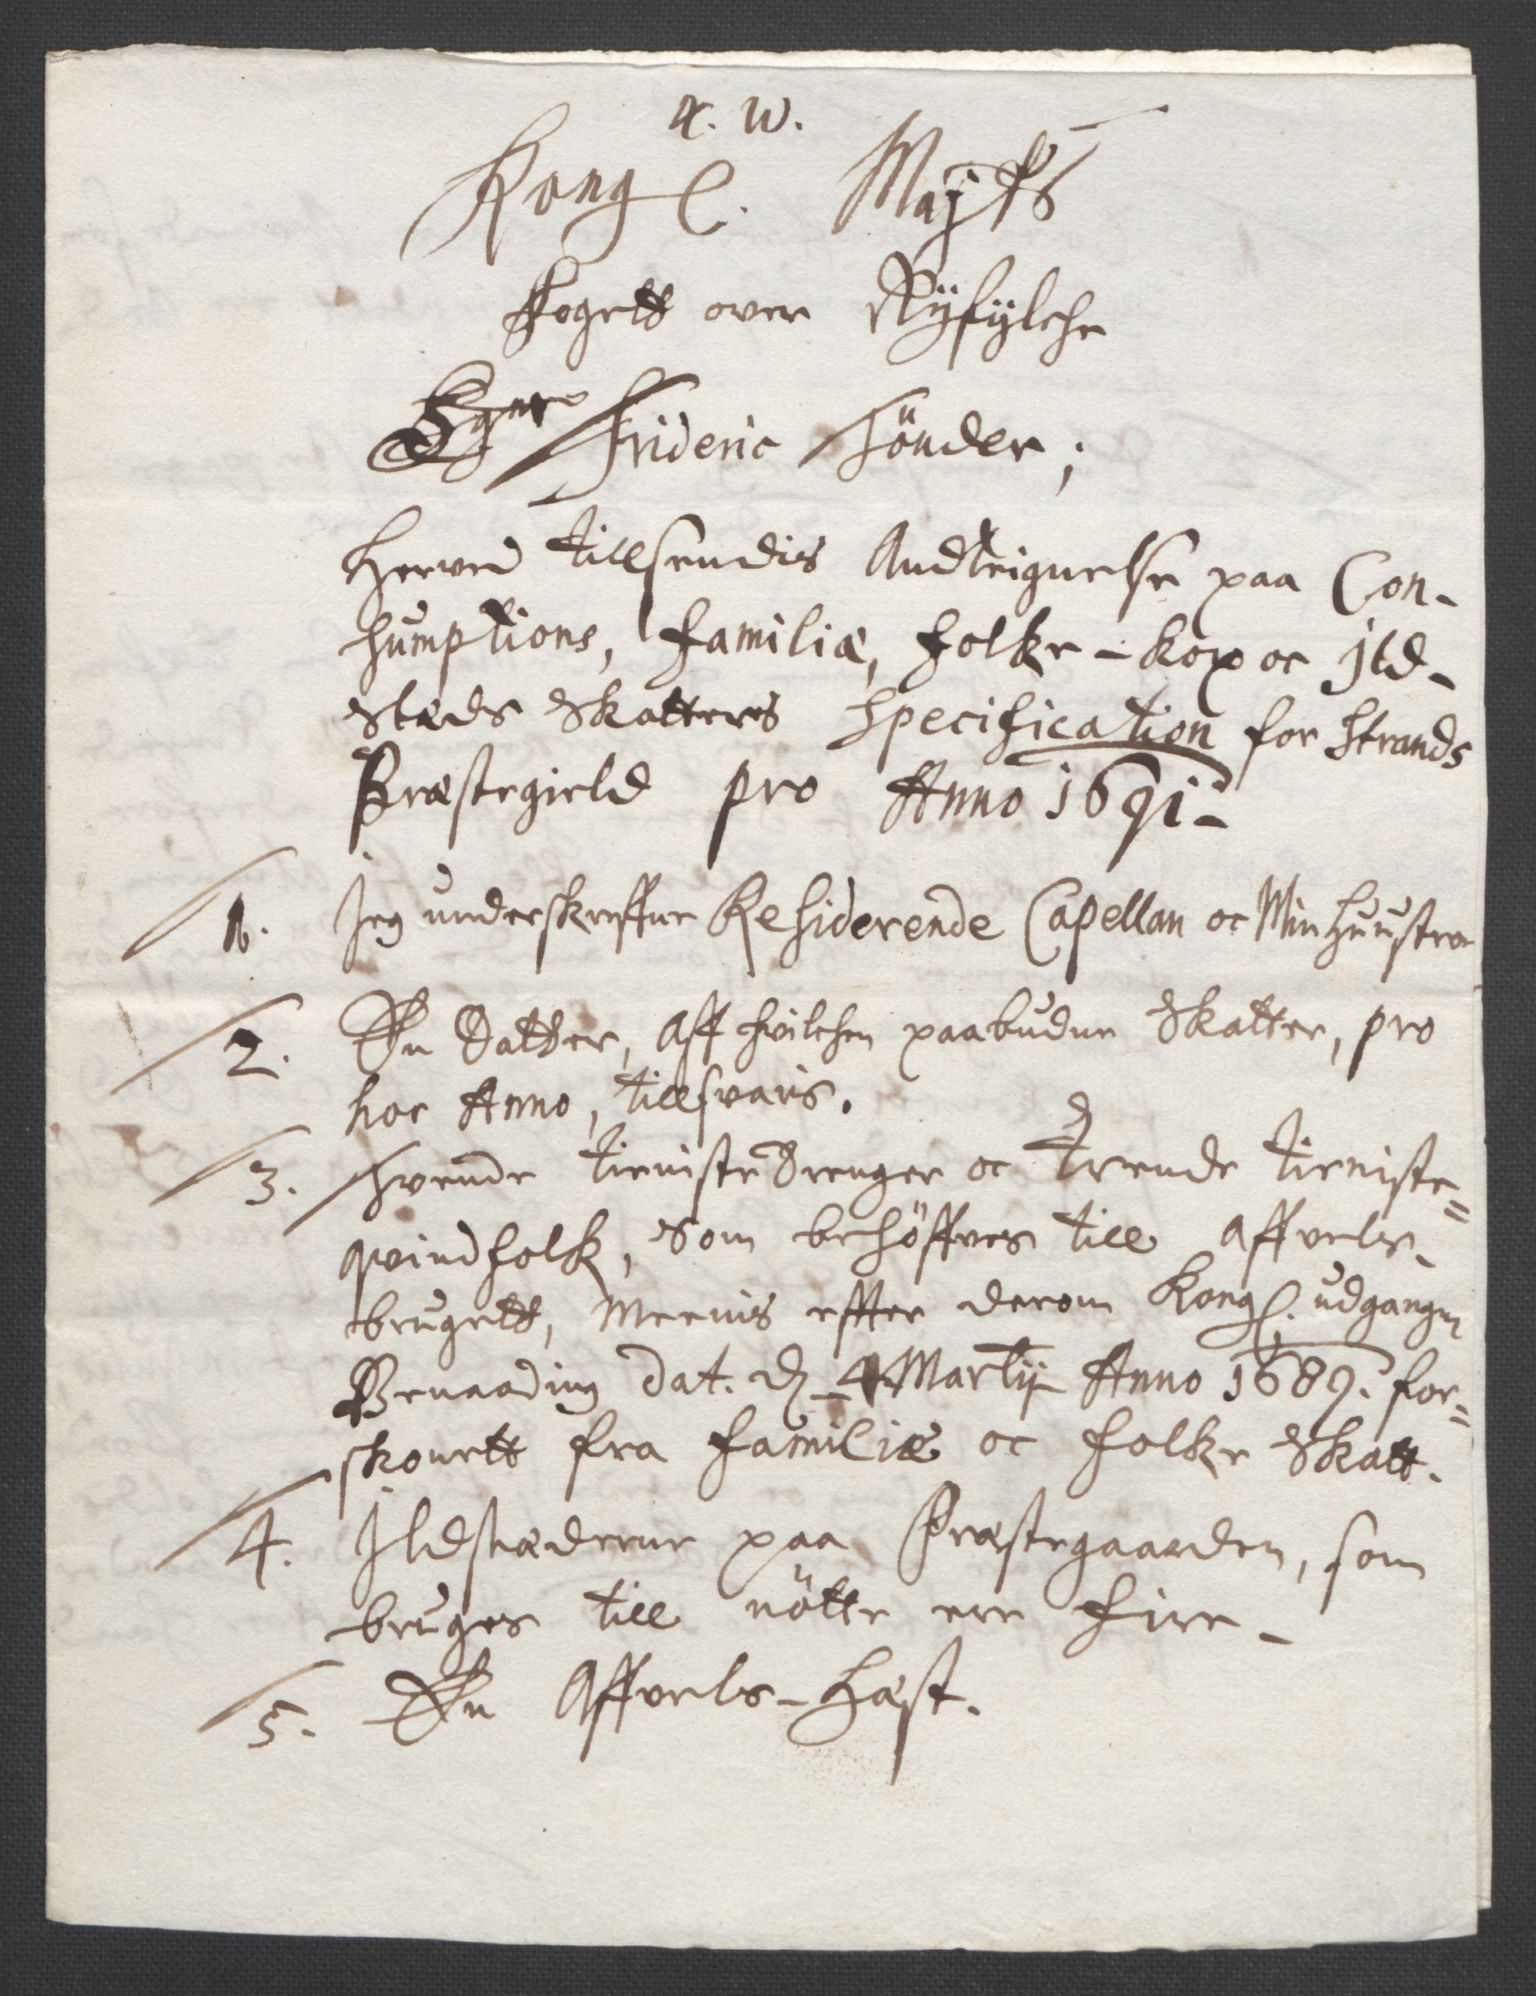 A. W.
Kongl. Majts
Fogett over Ryfylche
Sgnr Frideric Hönder;
Herved tillsendis Andteignelse paa Con-
sumptions, familiæ, folke-kop oc Ild-
stæds Skatters Specification for Strands
Præstegield pro Anno 1691-
1. Jeg underskreffne Residerende Capellan oc Min Huustro
2. En Datter, Aff hvilchen paabudne Skatter, pro
hoc Anno, tillsvaris.
3. Tvende tieniste Drenger oc Trende tieniste=
qvindfolk, Som behöffves till Affvels-
brugett, Meenis effter derom Kongl. udgangen
Benaading dat. d. 4 Martij Anno 1689. for=
skonett fra familiæ oc folke Skatt.
4. Ildstæderne paa Præstegaarden, som
bruges till nötte ere fire-
5. En Affvels-Hæst.